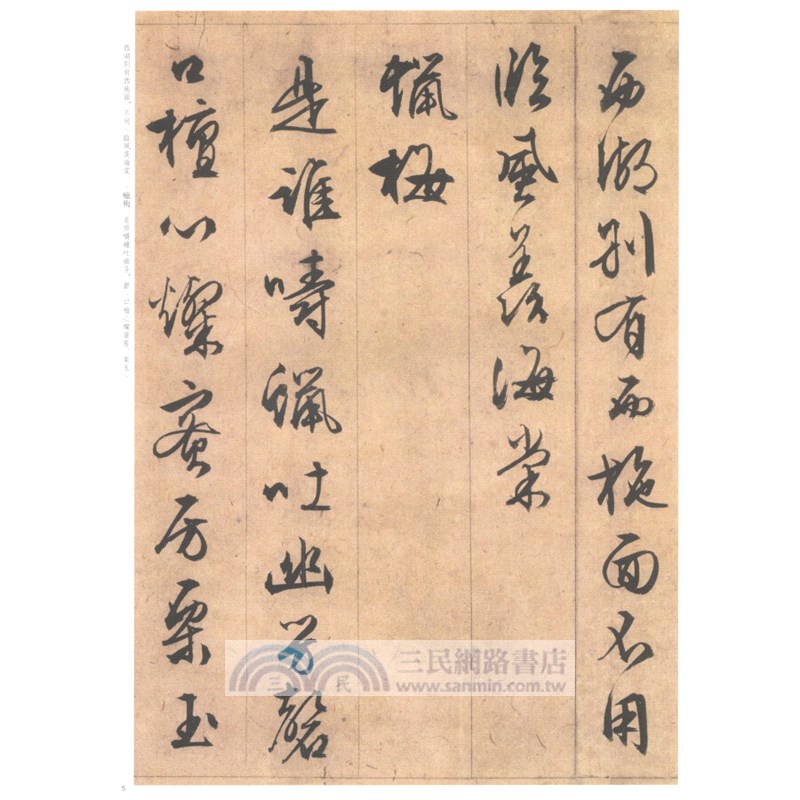 西湖別有西施面不用
臨風羨海棠
蠟梅
是誰嚼蠟吐幽芳磬
口檀心燦蜜房栗玉
三民網路書店
www.sanmin.com.tw
三 民
5